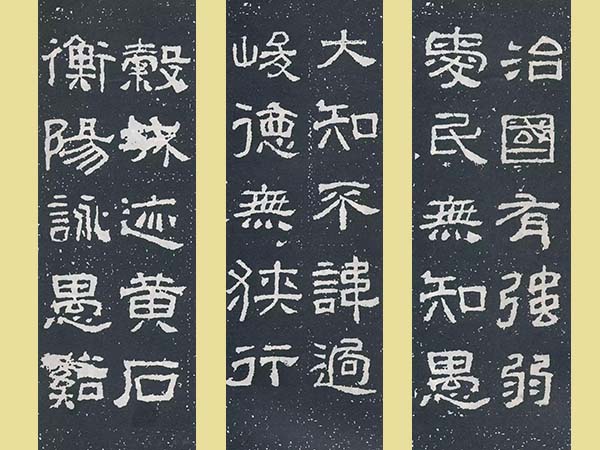 治國有強弱
愛民無知愚
大知不諱過
峻德無狹行
穀城迹黃石
衡陽詠愚谿